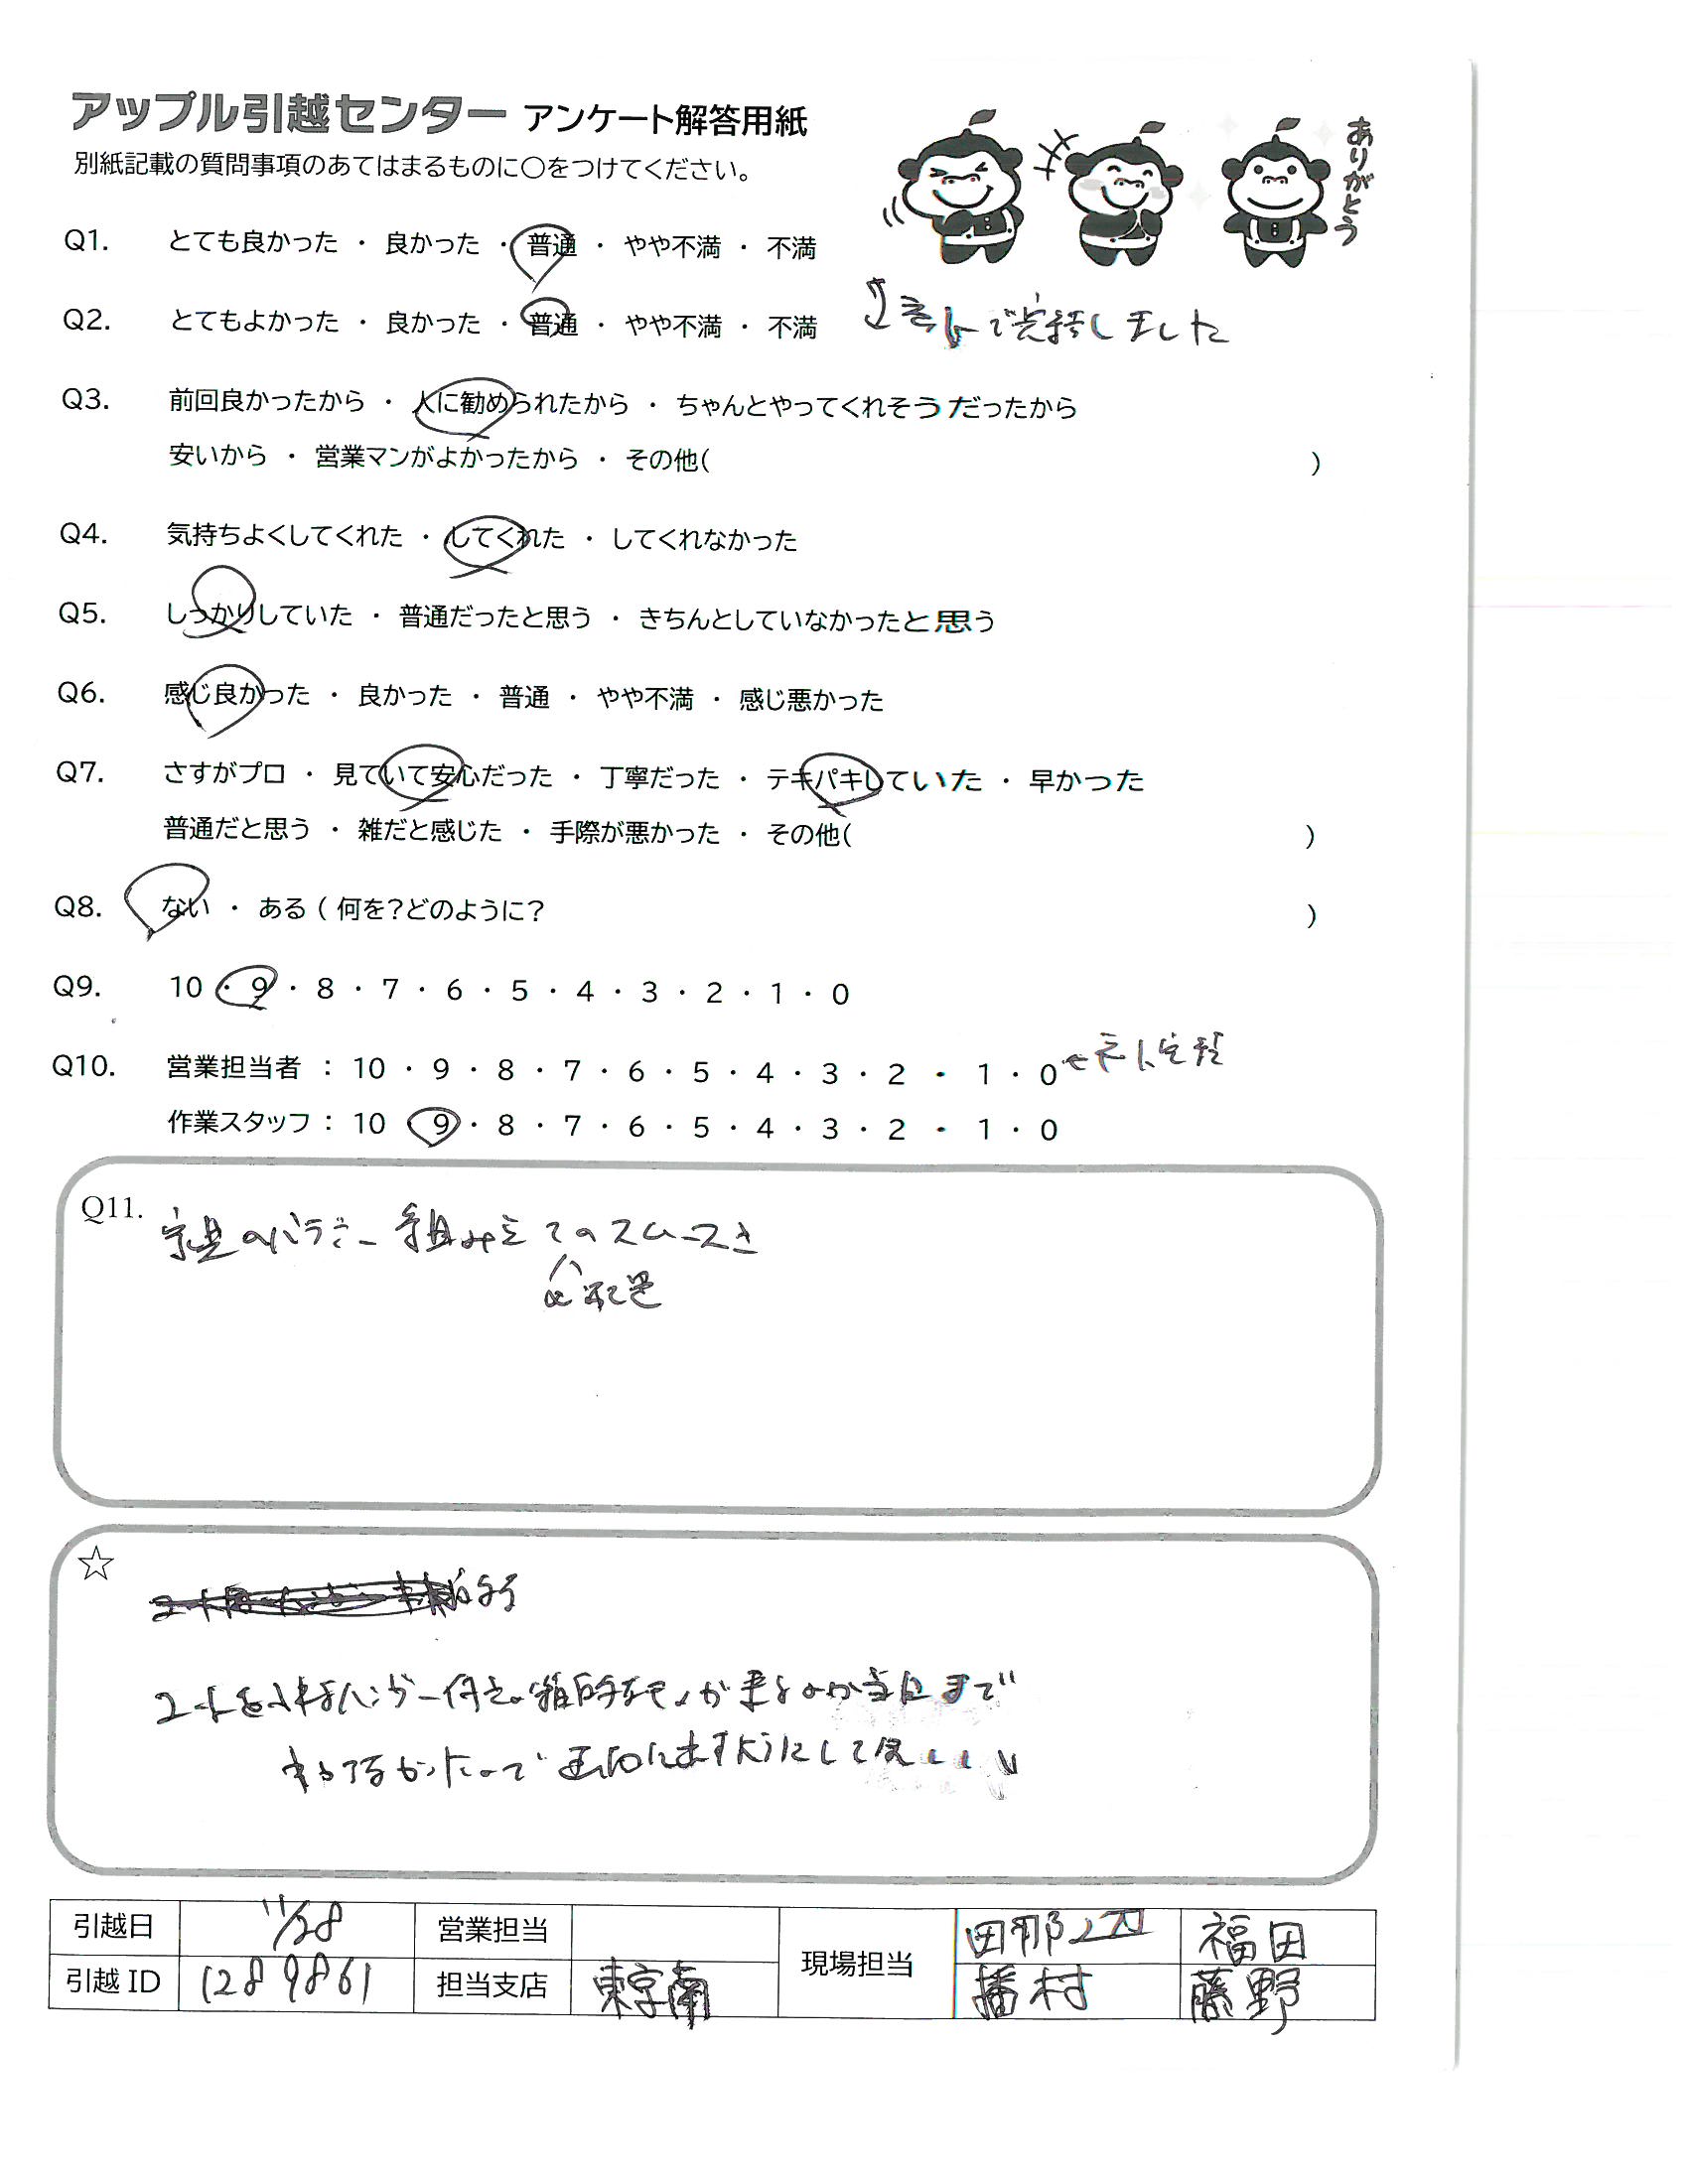 アップル引越センター アンケート解答用紙
別紙記載の質問事項のあてはまるものに〇をつけてください。
ありがとう
Q1. とても良かった ・ 良かった ・ 普通 ・ やや不満 ・ 不満
Q2. とてもよかった ・ 良かった ・ 普通 ・ やや不満 ・ 不満
ネットで完結しました
Q3. 前回良かったから ・ 人に勧められたから ・ ちゃんとやってくれそうだったから
安いから ・ 営業マンがよかったから ・ その他( )
Q4. 気持ちよくしてくれた ・ してくれた ・ してくれなかった
Q5. しっかりしていた ・ 普通だったと思う ・ きちんとしていなかったと思う
Q6. 感じ良かった ・ 良かった ・ 普通 ・ やや不満 ・ 感じ悪かった
Q7. さすがプロ ・ 見ていて安心だった ・ 丁寧だった ・ テキパキしていた ・ 早かった
普通だと思う ・ 雑だと感じた ・ 手際が悪かった ・ その他( )
Q8. ない ・ ある ( 何を?どのように? )
Q9. 10 ・ 9 ・ 8 ・ 7 ・ 6 ・ 5 ・ 4 ・ 3 ・ 2 ・ 1 ・ 0
Q10. 営業担当者 : 10 ・ 9 ・ 8 ・ 7 ・ 6 ・ 5 ・ 4 ・ 3 ・ 2 ・ 1 ・ 0 ←ネット完結
作業スタッフ : 10 ・ 9 ・ 8 ・ 7 ・ 6 ・ 5 ・ 4 ・ 3 ・ 2 ・ 1 ・ 0
Q11. 家具のバラシー組み立てのスムースさ
☆
まで
ようにして
引越日 11/28 営業担当 現場担当 福田
引越 ID 1289861 担当支店 東京南 播村 藤野